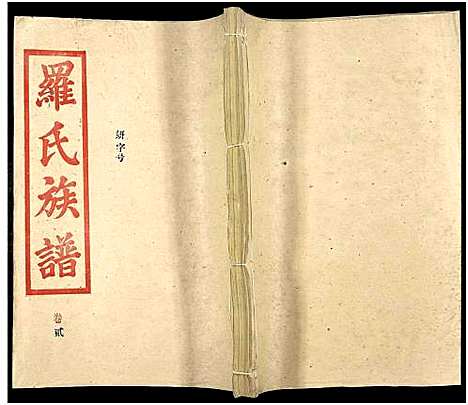 羅氏族譜
卷貳
字号